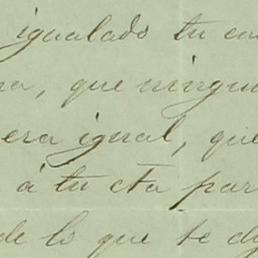 igualado tu
que ningu
era igual, que
á tu cta par
de lo que te d